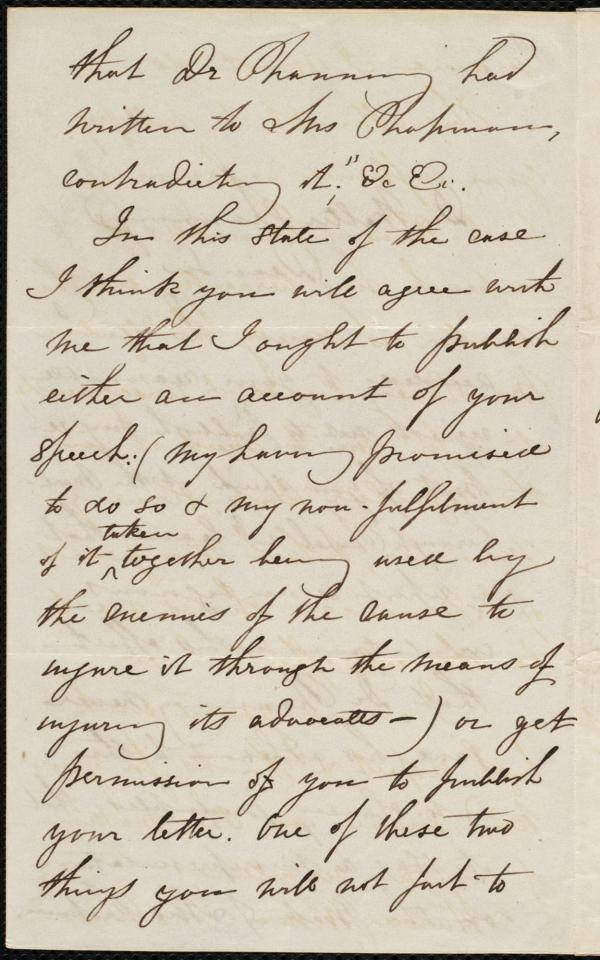 that Dr Channing had
written to Mrs Chapman,
contradicting it;" &c &c.
In this state of the case
I think you will agree with
me that I ought to publish
either an account of your
speech: (my having promised
to do so & my non-fulfilment
taken
of it ^ together being used by
the enemies of the cause to
injure it through the means of
injuring its advocates—) or get
permission of you to publish
your letter. One of these two
things you will not fail to